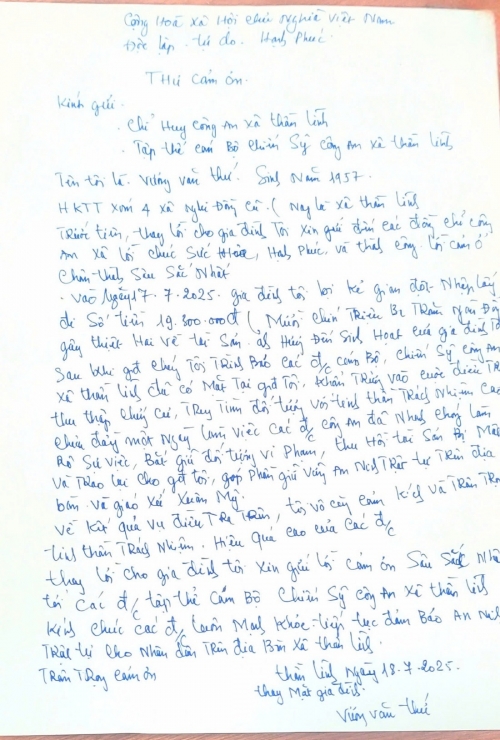 Cộng Hoà Xã Hội chủ nghĩa Việt Nam
Độc lập. tự do. Hạnh Phúc.
Thư cảm ơn.
Kính gửi.
. Chỉ Huy Công An xã thần lĩnh
. Tập thể cán Bộ Chiến Sỹ công An xã thần lĩnh
Tên tôi là. Vương văn thư. Sinh Năm 1957.
HKTT xóm 4 xã Nghi Đồng cũ. (Nay là xã thần lĩnh
Trước tiên, thay lời cho gia đình Tôi xin gửi đến các đồng chí công
An xã lời chúc Sức Khỏe, Hạnh Phúc, và thành công. lời cảm ơn
Chân thành Sâu Sắc Nhất
. vào Ngày 17.7.2025. gia đình tôi bị kẻ gian đột Nhập lấy
đi Số tiền 19.300.000đ (Mười chín Triệu Ba Trăm Ngàn Đồng
gây thiệt Hại về tài Sản. ảnh Hưởng Đến Sinh Hoạt của gia đình Tôi
Sau khi gđ chúng Tôi Trình Báo các đ/c cán Bộ, Chiến Sỹ công An
xã thần lĩnh đã có Mặt Tại gđ Tôi, khẩn Trương vào cuộc điều Tra
thu thập chứng cứ, Truy Tìm đối tượng với tinh thần Trách Nhiệm Cao
chưa đầy một Ngày làm việc các đ/c công An đã Nhanh chóng làm
Rõ Sự việc, Bắt giữ đối tượng vi Phạm, thu Hồi tài Sản Bị Mất
và Trao lại cho gđ tôi, góp Phần giữ vững An Ninh Trật tự Trên địa
bàn. và giáo xứ Xuân Mỹ.
về kết quả vụ điều Tra Trên, tôi vô cùng cảm kích và Trân Trọng
tinh thần Trách Nhiệm, Hiệu quả cao của các đ/c
thay lời cho gia đình tôi xin gửi lời cảm ơn Sâu Sắc Nhất
tới các đ/c tập thể Cán Bộ Chiến Sỹ công An xã thần lĩnh
kính chúc các đ/c luôn Mạnh Khỏe. tiếp tục đảm Bảo An Ninh
Trật tự cho Nhân dân Trên địa Bàn xã thần lĩnh.
Trân Trọng cảm ơn
thần lĩnh Ngày 18.7.2025.
thay Mặt gia đình.
Vương văn thư